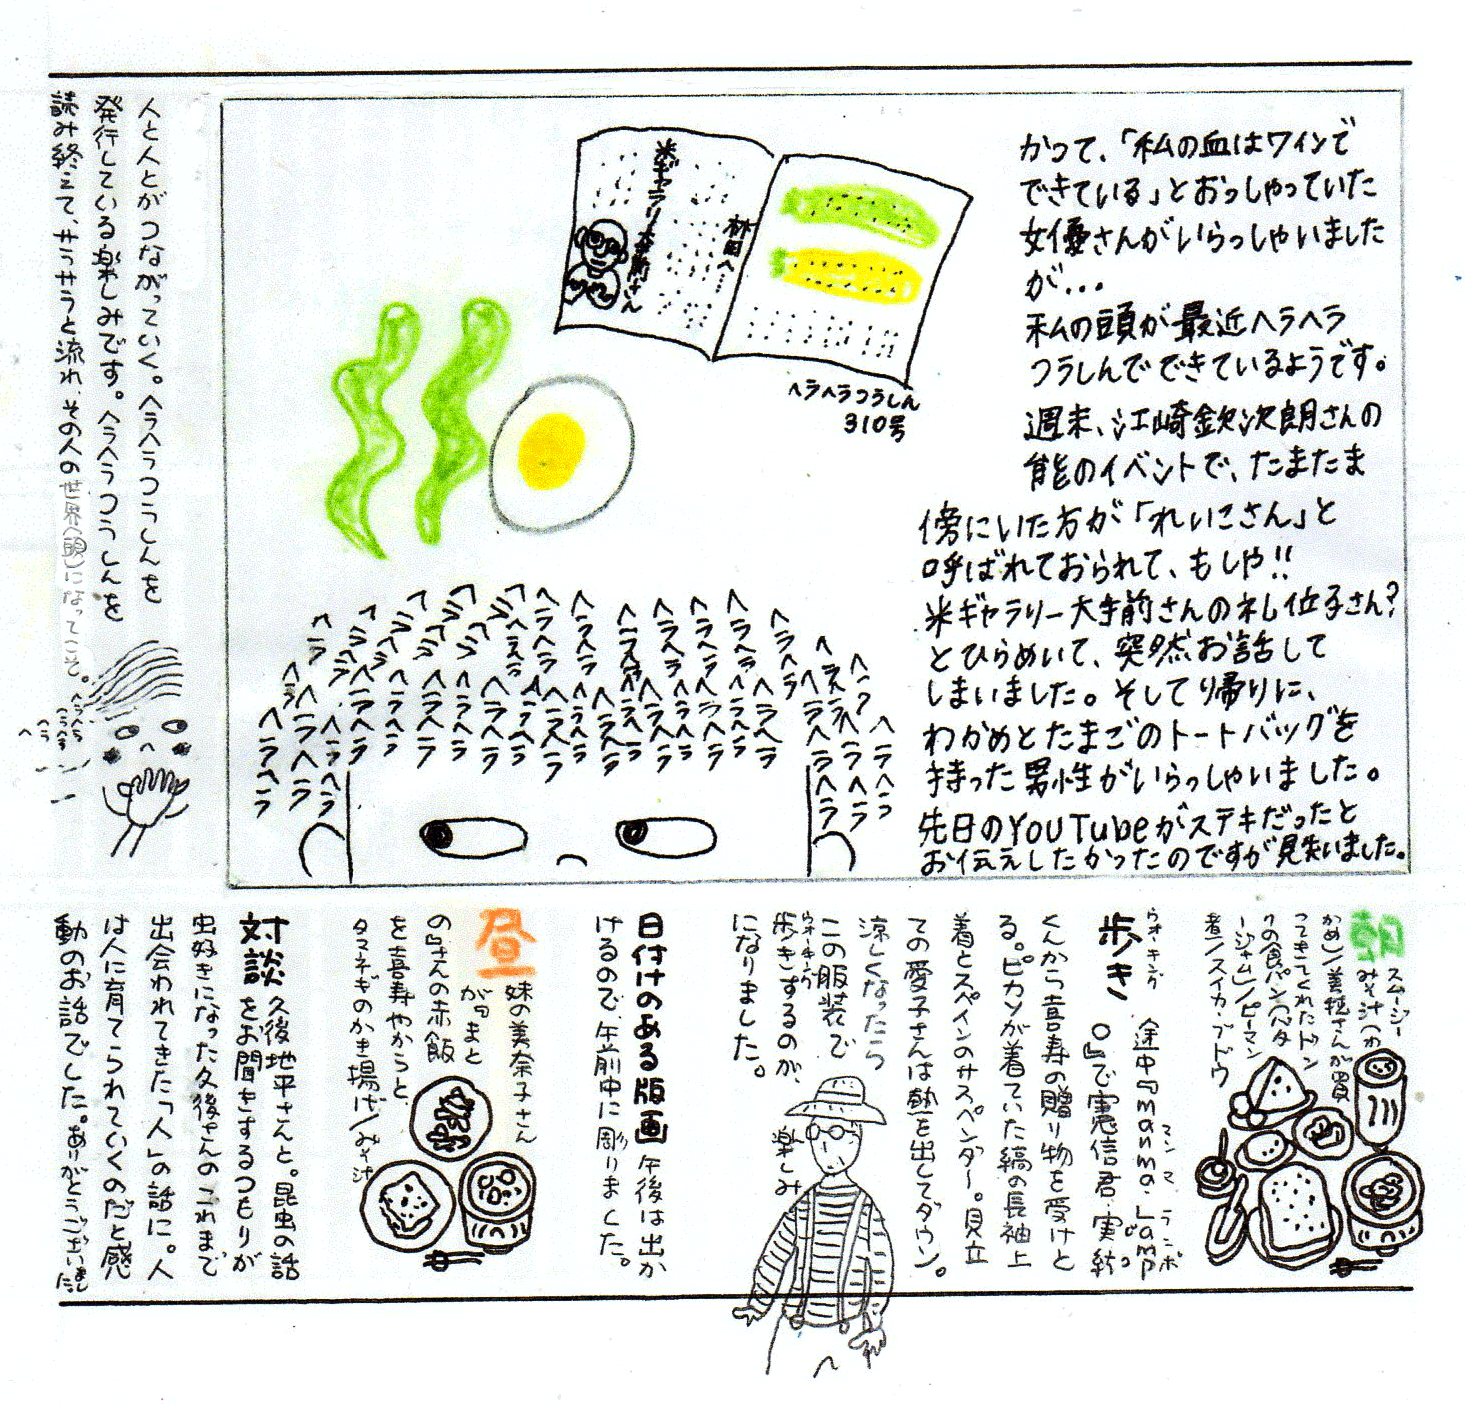 かつて、「私の血はワインで
できている」とおっしゃっていた
女優さんがいらっしゃいました
が...
私の頭が最近ヘラヘラ
つうしんでできているようです。
週末、江崎欽次朗さんの
能のイベントで、たまたま
傍にいた方が「れいこさん」と
呼ばれておられて、もしや!!
米ギャラリー大手前さんの礼位子さん?
とひらめいて、突然お話して
しまいました。そして帰りに、
わかめとたまごのトートバッグを
持った男性がいらっしゃいました。
先日のYouTubeがステキだったと
お伝えしたかったのですが見失いました。
米ギャラリー大手前さん
林田へ...
ヘラヘラつうしん
310号
人と人とがつながっていく。ヘラヘラつうしんを
発行している楽しみです。ヘラヘラつうしんを
読み終えて、サラサラと流れ、その人の世界(頭)になってこそ。
ヘラヘラ
ヘラヘラ
ヘラヘラ
ヘラ
朝
スムージー
みそ汁(わ
かめ)/美穂さんが買
ってきてくれたドン
クの食パン(バタ
ージャム)/ピーマン
煮/スイカ・ブドウ
歩き
ウオーキング
途中『manma.Lamp
マンマ ランポ
O』で憲信君・実紗
くんから喜寿の贈り物を受けと
る。ピカソが着ていた縞の長袖上
着とスペインのサスペンダー。見立
ての愛子さんは熱を出してダウン。
涼しくなったら
この服装で
歩きするのが、
ウオーキング
楽しみ
になりました。
日付けのある版画 午後は出か
けるので、午前中に彫りました。
昼
妹の美奈子さん
が『まと
の』さんの赤飯
を喜寿やからと
タマネギのかき揚げ/みそ汁
対談 久後地平さんと。昆虫の話
をお聞きするつもりが
虫好きになった久後さんのこれまで
出会われてきた「人」の話に。人
は人に育てられていくのだと感
動のお話でした。ありがとうございました。